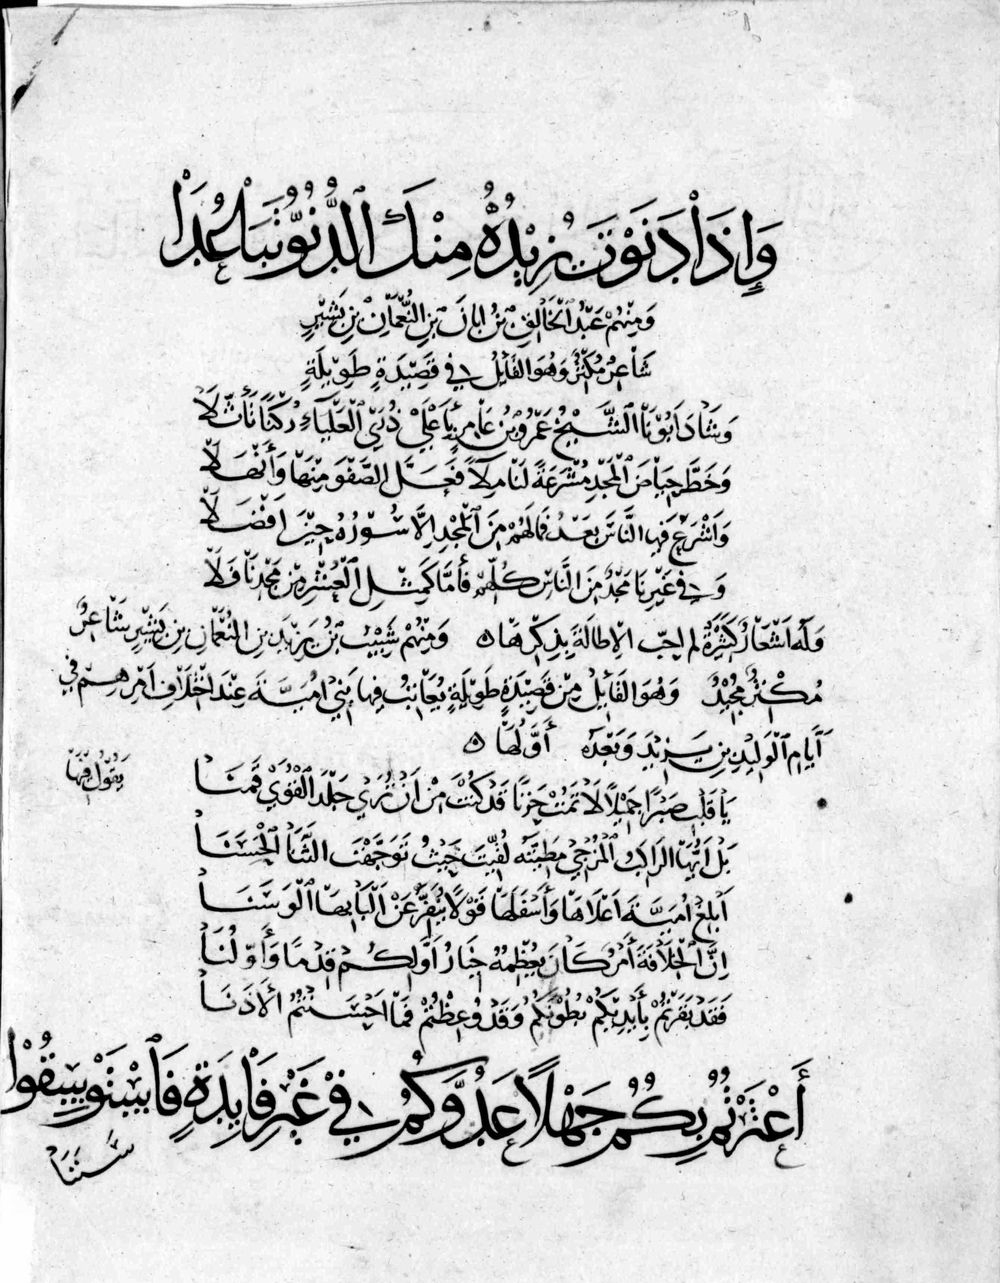 وَإِذَا دَنَوْتَ يَزِيْدُهُ مِنْكَ الدُّنُوُّ تَبَاعُدَا
وَمِنْهُمْ عَبْدُ الْخَالِقِ بْنُ ابانَ بْنِ النُّعْمَانِ بْنِ بَشِيْرٍ
شَاعِرٌ مُكْثِرٌ وَهُوَ القَائِلُ فِي قَصِيْدَةٍ طَوِيْلَةٍ
وَشَادَ أَبُوْنَا الشَّيْخُ عَمْرُو بْنُ عَامِرٍ بِأَعْلَى ذُرَى الْعَلْيَاءِ رُكْنًا تَأَثَّلَا
وَخَطَّ حِيَاضَ الْمَجْدِ مُتْرَعَةً لَنَا مِلَاءً فَعَلَّ الصَّفْوَ مِنْهَا وَأَنْهَلَا
وَأَشْرَعَ فِيهَا النَّاسَ بَعْدُ فَمَا لَهُمْ مِنَ الْمَجْدِ إِلَّا سُؤْرُهُ حِيْنَ افْضَلَا
وَفِي غَيْرِنَا مَجْدٌ مِنَ النَّاسِ كُلِّهِمْ فَأَمَّا كَمِثْلِ الْعُشْرِ مِنْ مَجْدِنَا فَلَا
وَلَهُ اَشْعَارٌ كَثِيْرَةٌ لم احِبّ الاِطَالَةَ بِذِكْرِهَا ه وَمِنْهُمْ شَبِيْبُ بْنُ يَزِيْدَ بنِ النُّعْمَانِ بنِ بَشِيْرٍ شَاعِرٌ
مُكْثِرٌ مُجِيْدٌ وَهُوَ القَائِلُ مِنْ قَصِيْدَةٍ طَوِيْلَةٍ يُعَاتِبُ فِيهَا بَنِي امُيَّةَ عِنْدَ اخْتِلَافِ اَمْرِهِمْ فِي
أَيَّامِ الْوَلِيْدِ بنِ يَزِيْدَ وَبَعْدَهُ أَوَّلُهَا ه
يَا قَلْبِ صَبْرًا جَمِيْلًا لَا تَمُتْ حَزَنًا قَدْ كُنْتَ مِنْ أَنْ تُرَى جَلْدَ الْقُوَى قَمِنَا
يَقُوْلُ فِيْهَا
بَلْ اَيُّهَا الرَّاكِبُ الْمُزْجِي مَطِيَّتَهُ لُقِّيْتَ حَيْثُ تَوَجَّهْتَ الثَّنَا الْحَسَنَا
اَبْلِغْ أُمَيَّةَ اَعْلَاهَا وَأَسْفَلَهَا قَوْلًا يُنَفِّرُ عَنْ أَلْبَابِهَا الْوَسَنَا
اِنَّ الْخِلَافَةَ أَمْرٌ كَانَ يُعْظِمُهُ خِيَارُ أَوَّلِكُمْ قِدْمًا وَأَوَّلُنَا
فَقَدْ بَقَرْتُمْ بِأَيْدِيْكُمْ بُطُوْنَكُمُ وَقَدْ وُعِظْتُمْ فَمَا احْسَنْتُمُ الاَذَنَا
أَغْرَيْتُمُ بِكُمُ جَهْلًا عَدُوَّكُمُ فِي غَيْرِ فَائِدَةٍ فَاسْتَوْسَقُوْا
سَنَنَا